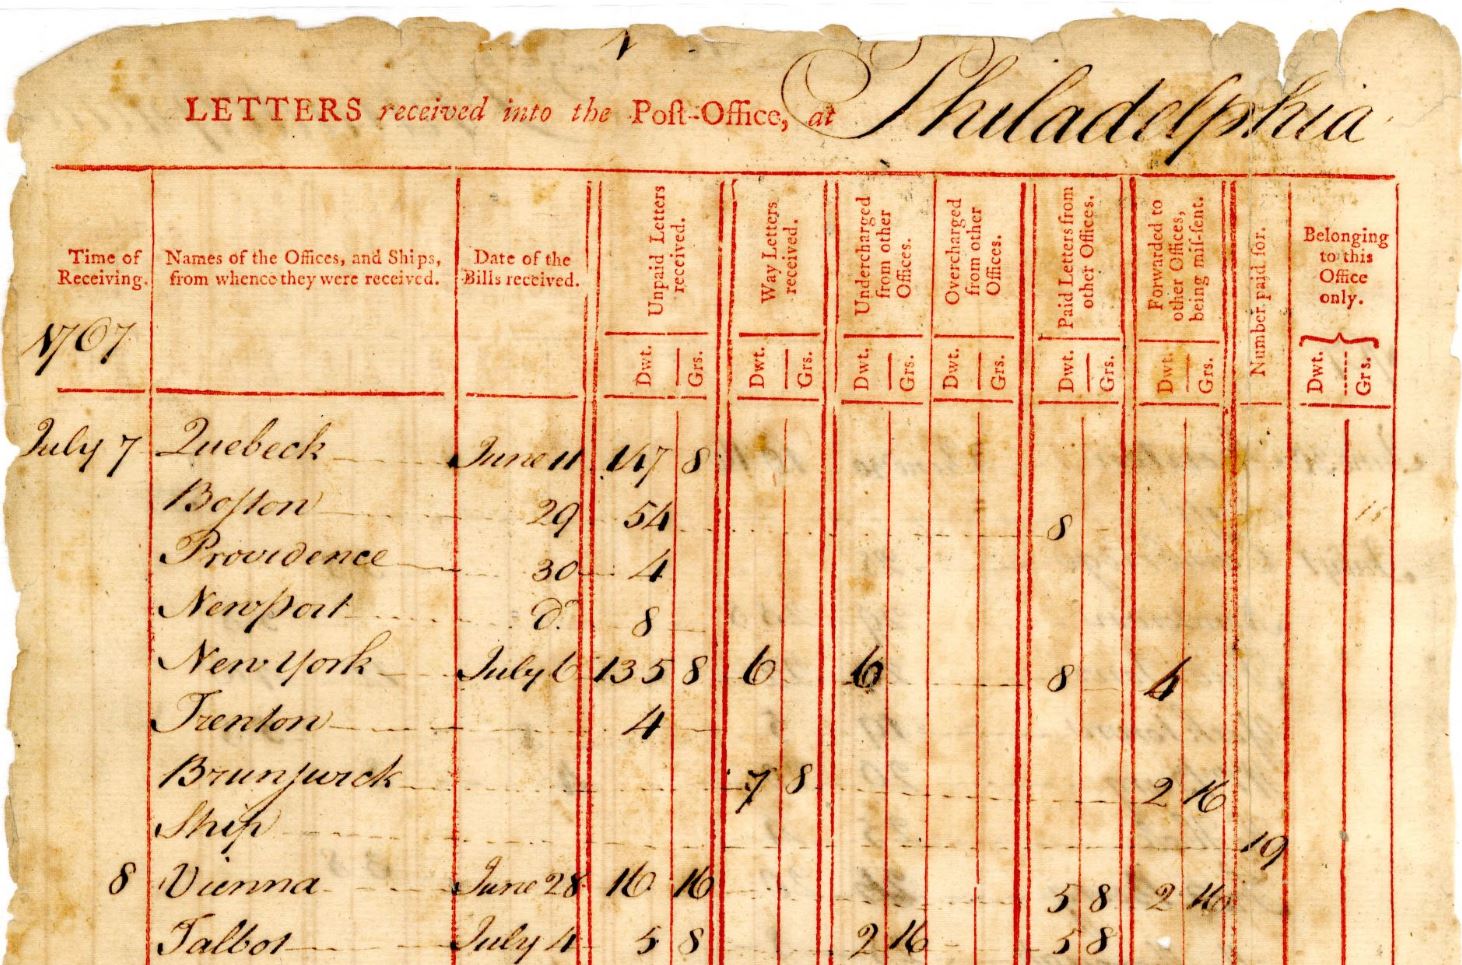 LETTERS received into the Poſt-Office, at Philadelphia
Time of Receiving.
Names of the Offices, and Ships, from whence they were received.
Date of the Bills received.
Unpaid Letters received.
Way Letters received.
Undercharged from other Offices.
Overcharged from other Offices.
Paid Letters from other Offices.
Forwarded to other Offices, being miſ-ſent.
Number paid for.
Belonging to this Office only.
Dwt. Grs. Dwt. Grs. Dwt. Grs. Dwt. Grs. Dwt. Grs. Dwt. Grs. Dwt. Grs.
1767
July 7 Quebeck June 11 147 8
Boſton 29 54 8
Providence 30 4
Newport do. 8
New York July 6 135 8 6 6 8 4
Trenton 4
Brunſwick 7 8 2 16
Ship 19
8 Vienna June 28 16 16 5 8 2 16
Talbot July 4 5 8 2 16 5 8